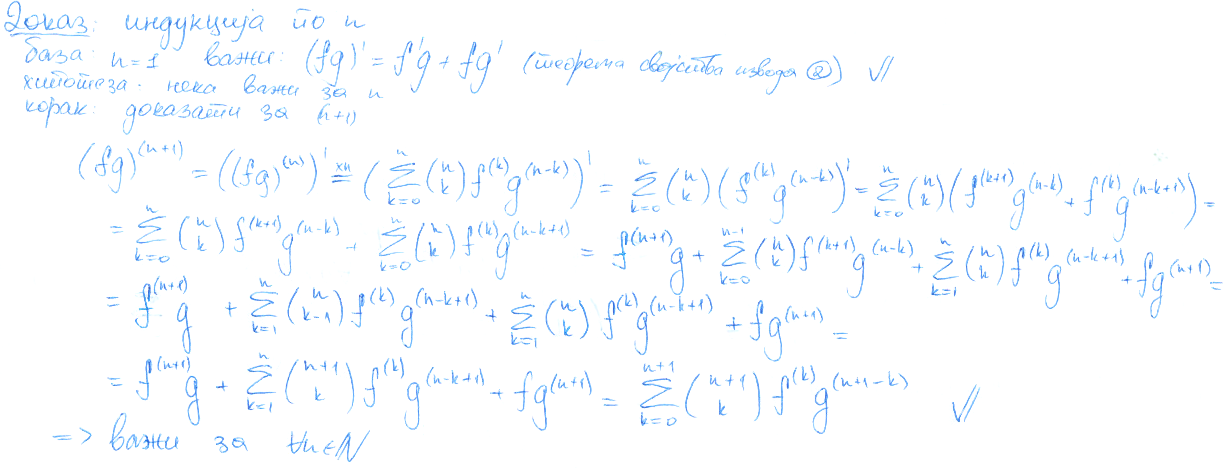 Доказ: индукција по n
база: n=1 важи: (fg)' = f'g + fg' (теорема својства извода ②) ✓
хипотеза: нека важи за n
корак: доказати за (n+1)
(fg)^{(n+1)} = ((fg)^{(n)})' \overset{хи}{=} (\sum_{k=0}^{n} \binom{n}{k} f^{(k)} g^{(n-k)})' = \sum_{k=0}^{n} \binom{n}{k} (f^{(k)} g^{(n-k)})' = \sum_{k=0}^{n} \binom{n}{k} (f^{(k+1)} g^{(n-k)} + f^{(k)} g^{(n-k+1)}) =
= \sum_{k=0}^{n} \binom{n}{k} f^{(k+1)} g^{(n-k)} + \sum_{k=0}^{n} \binom{n}{k} f^{(k)} g^{(n-k+1)} = f^{(n+1)} g + \sum_{k=0}^{n-1} \binom{n}{k} f^{(k+1)} g^{(n-k)} + \sum_{k=1}^{n} \binom{n}{k} f^{(k)} g^{(n-k+1)} + fg^{(n+1)} =
= f^{(n+1)} g + \sum_{k=1}^{n} \binom{n}{k-1} f^{(k)} g^{(n-k+1)} + \sum_{k=1}^{n} \binom{n}{k} f^{(k)} g^{(n-k+1)} + fg^{(n+1)} =
= f^{(n+1)} g + \sum_{k=1}^{n} \binom{n+1}{k} f^{(k)} g^{(n-k+1)} + fg^{(n+1)} = \sum_{k=0}^{n+1} \binom{n+1}{k} f^{(k)} g^{(n+1-k)} ✓
=> важи за ∀n∈ℕ